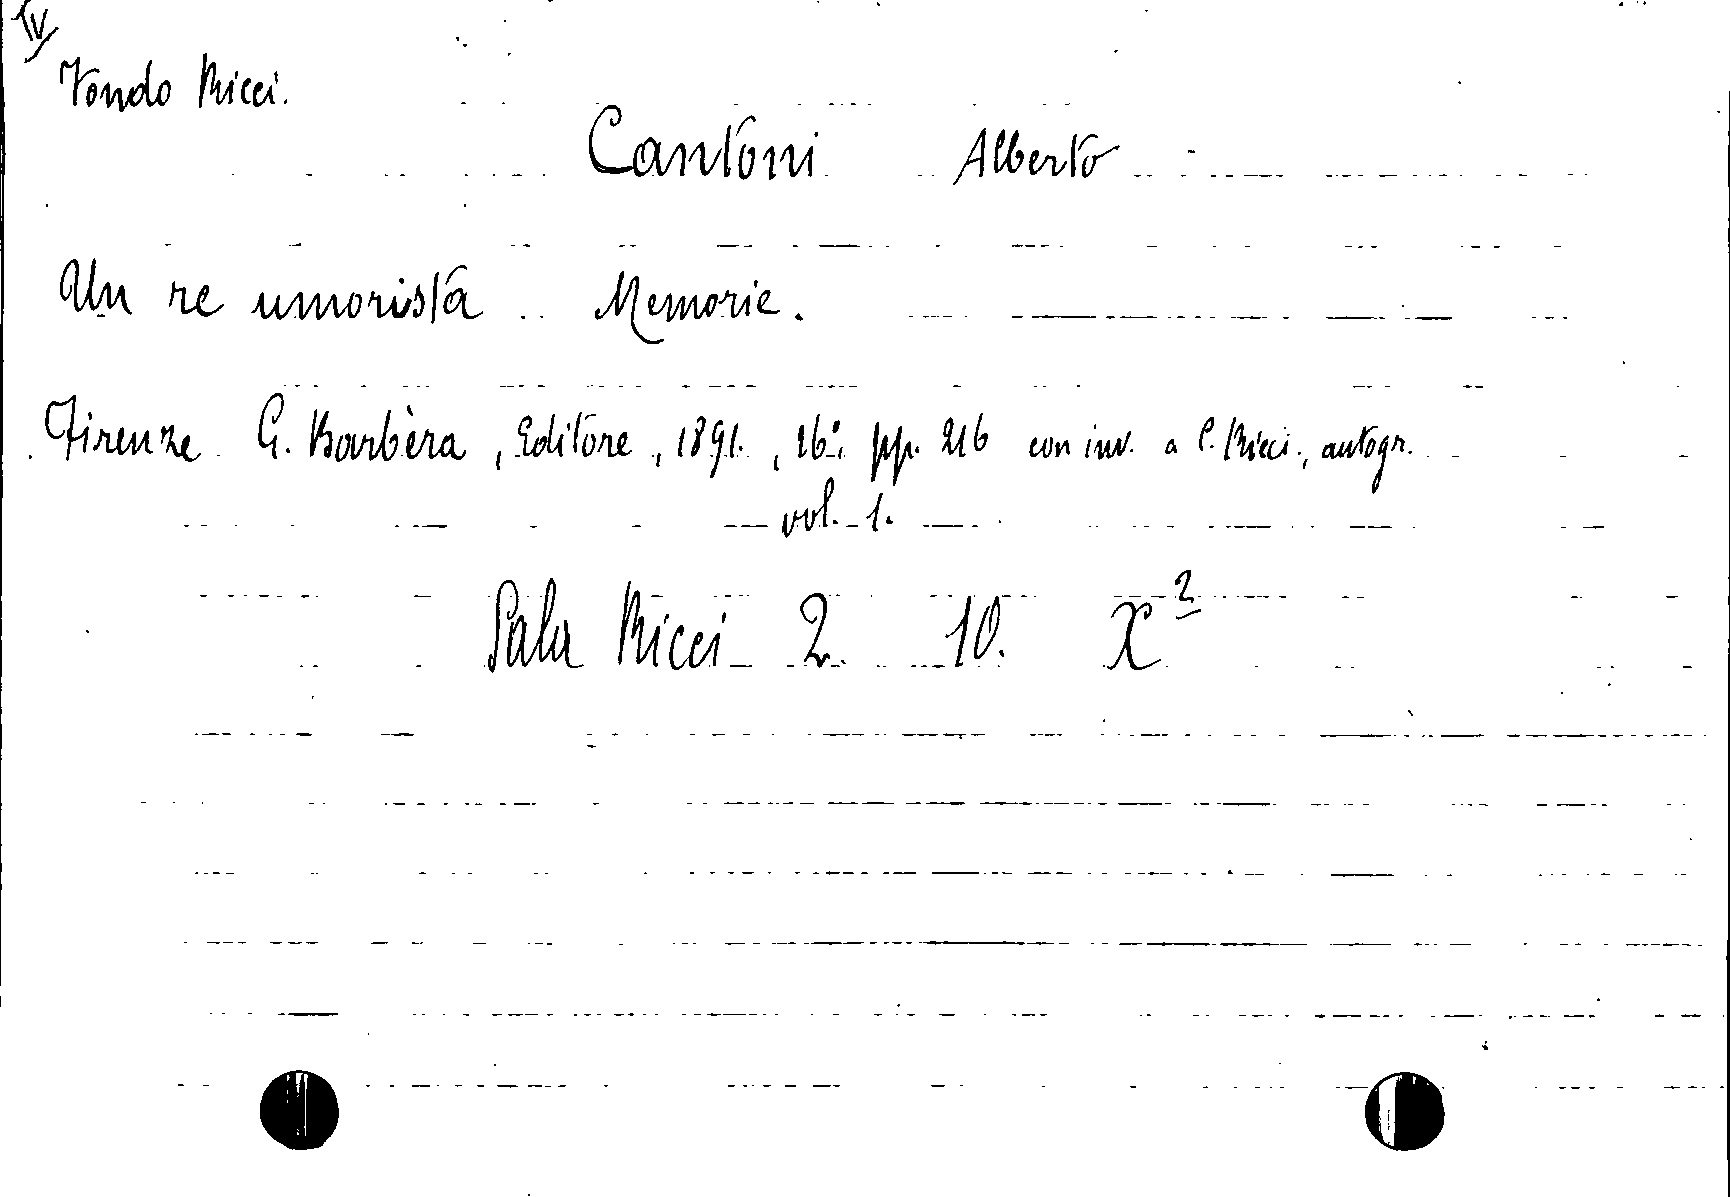 IV
Fondo Ricci.
Cantoni Alberto
Un re umorista Memorie.
Firenze G. Barbèra, Editore, 1891., 16°; pp. 216 con inv. a C. Ricci., autogr.
vol. 1.
Sala Ricci 2. 10. X²